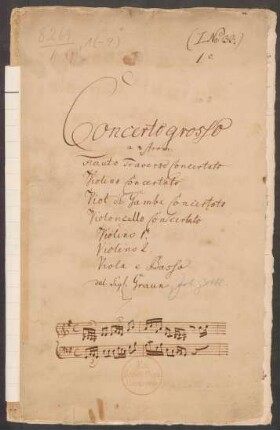 8261
(I. No 38.)
1c
Concerto grosso
Flauto Traverso Concertato
Violino Concertato
Viol di Gambe Concertato
Violoncello Concertato
Violino 1.
Violino 2
Viola e Basso
del Sigl Graun